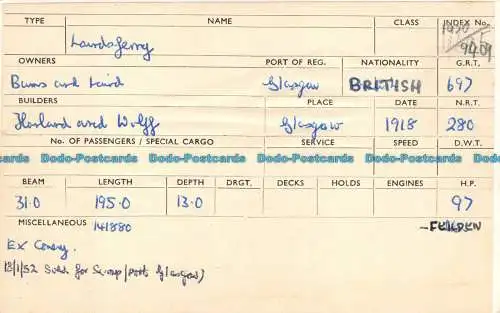 TYPE NAME CLASS INDEX No.
Lairdsferry 9409
OWNERS PORT OF REG. NATIONALITY G.R.T.
Burns and Laird Glasgow BRITISH 697
BUILDERS PLACE DATE N.R.T.
Harland and Wolff Glasgow 1918 280
No. OF PASSENGERS / SPECIAL CARGO SERVICE SPEED D.W.T.
Dodo-Postcards Dodo-Postcards Dodo-Postcards Dodo-Postcards
BEAM LENGTH DEPTH DRGT. DECKS HOLDS ENGINES H.P.
31.0 195.0 13.0 97
MISCELLANEOUS 141880 - FEILDEN
Ex Coney.
18/1/52 Sold for Scrap (Port Glasgow)